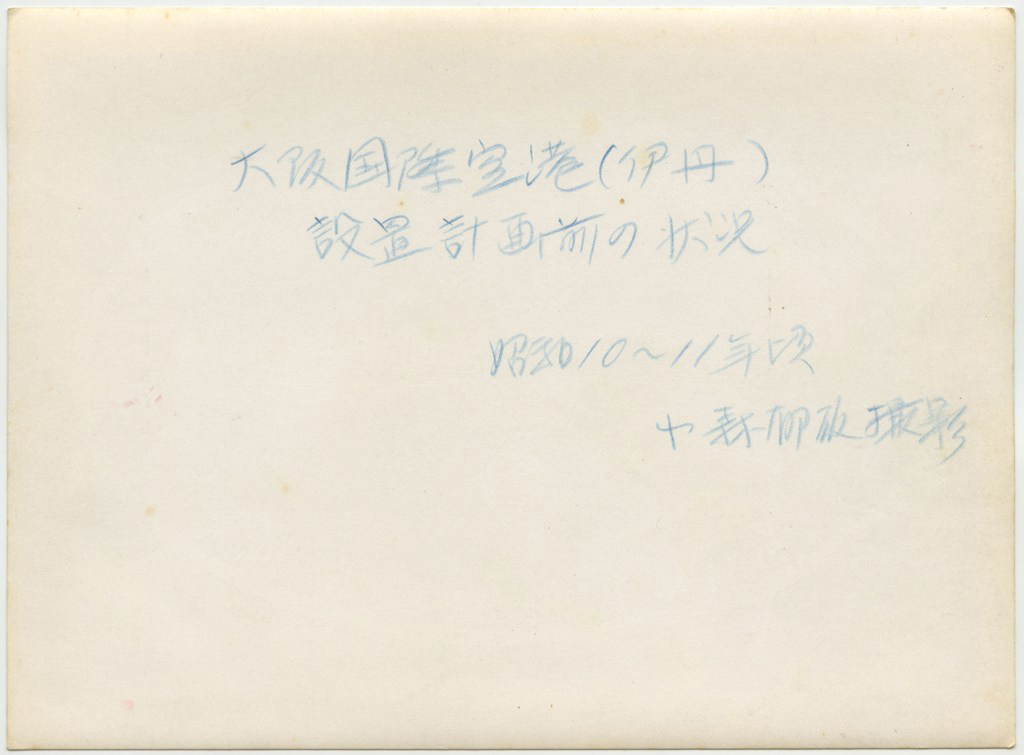 大阪国際空港(伊丹)
設置計画前の状況
昭和10~11年頃
撮影